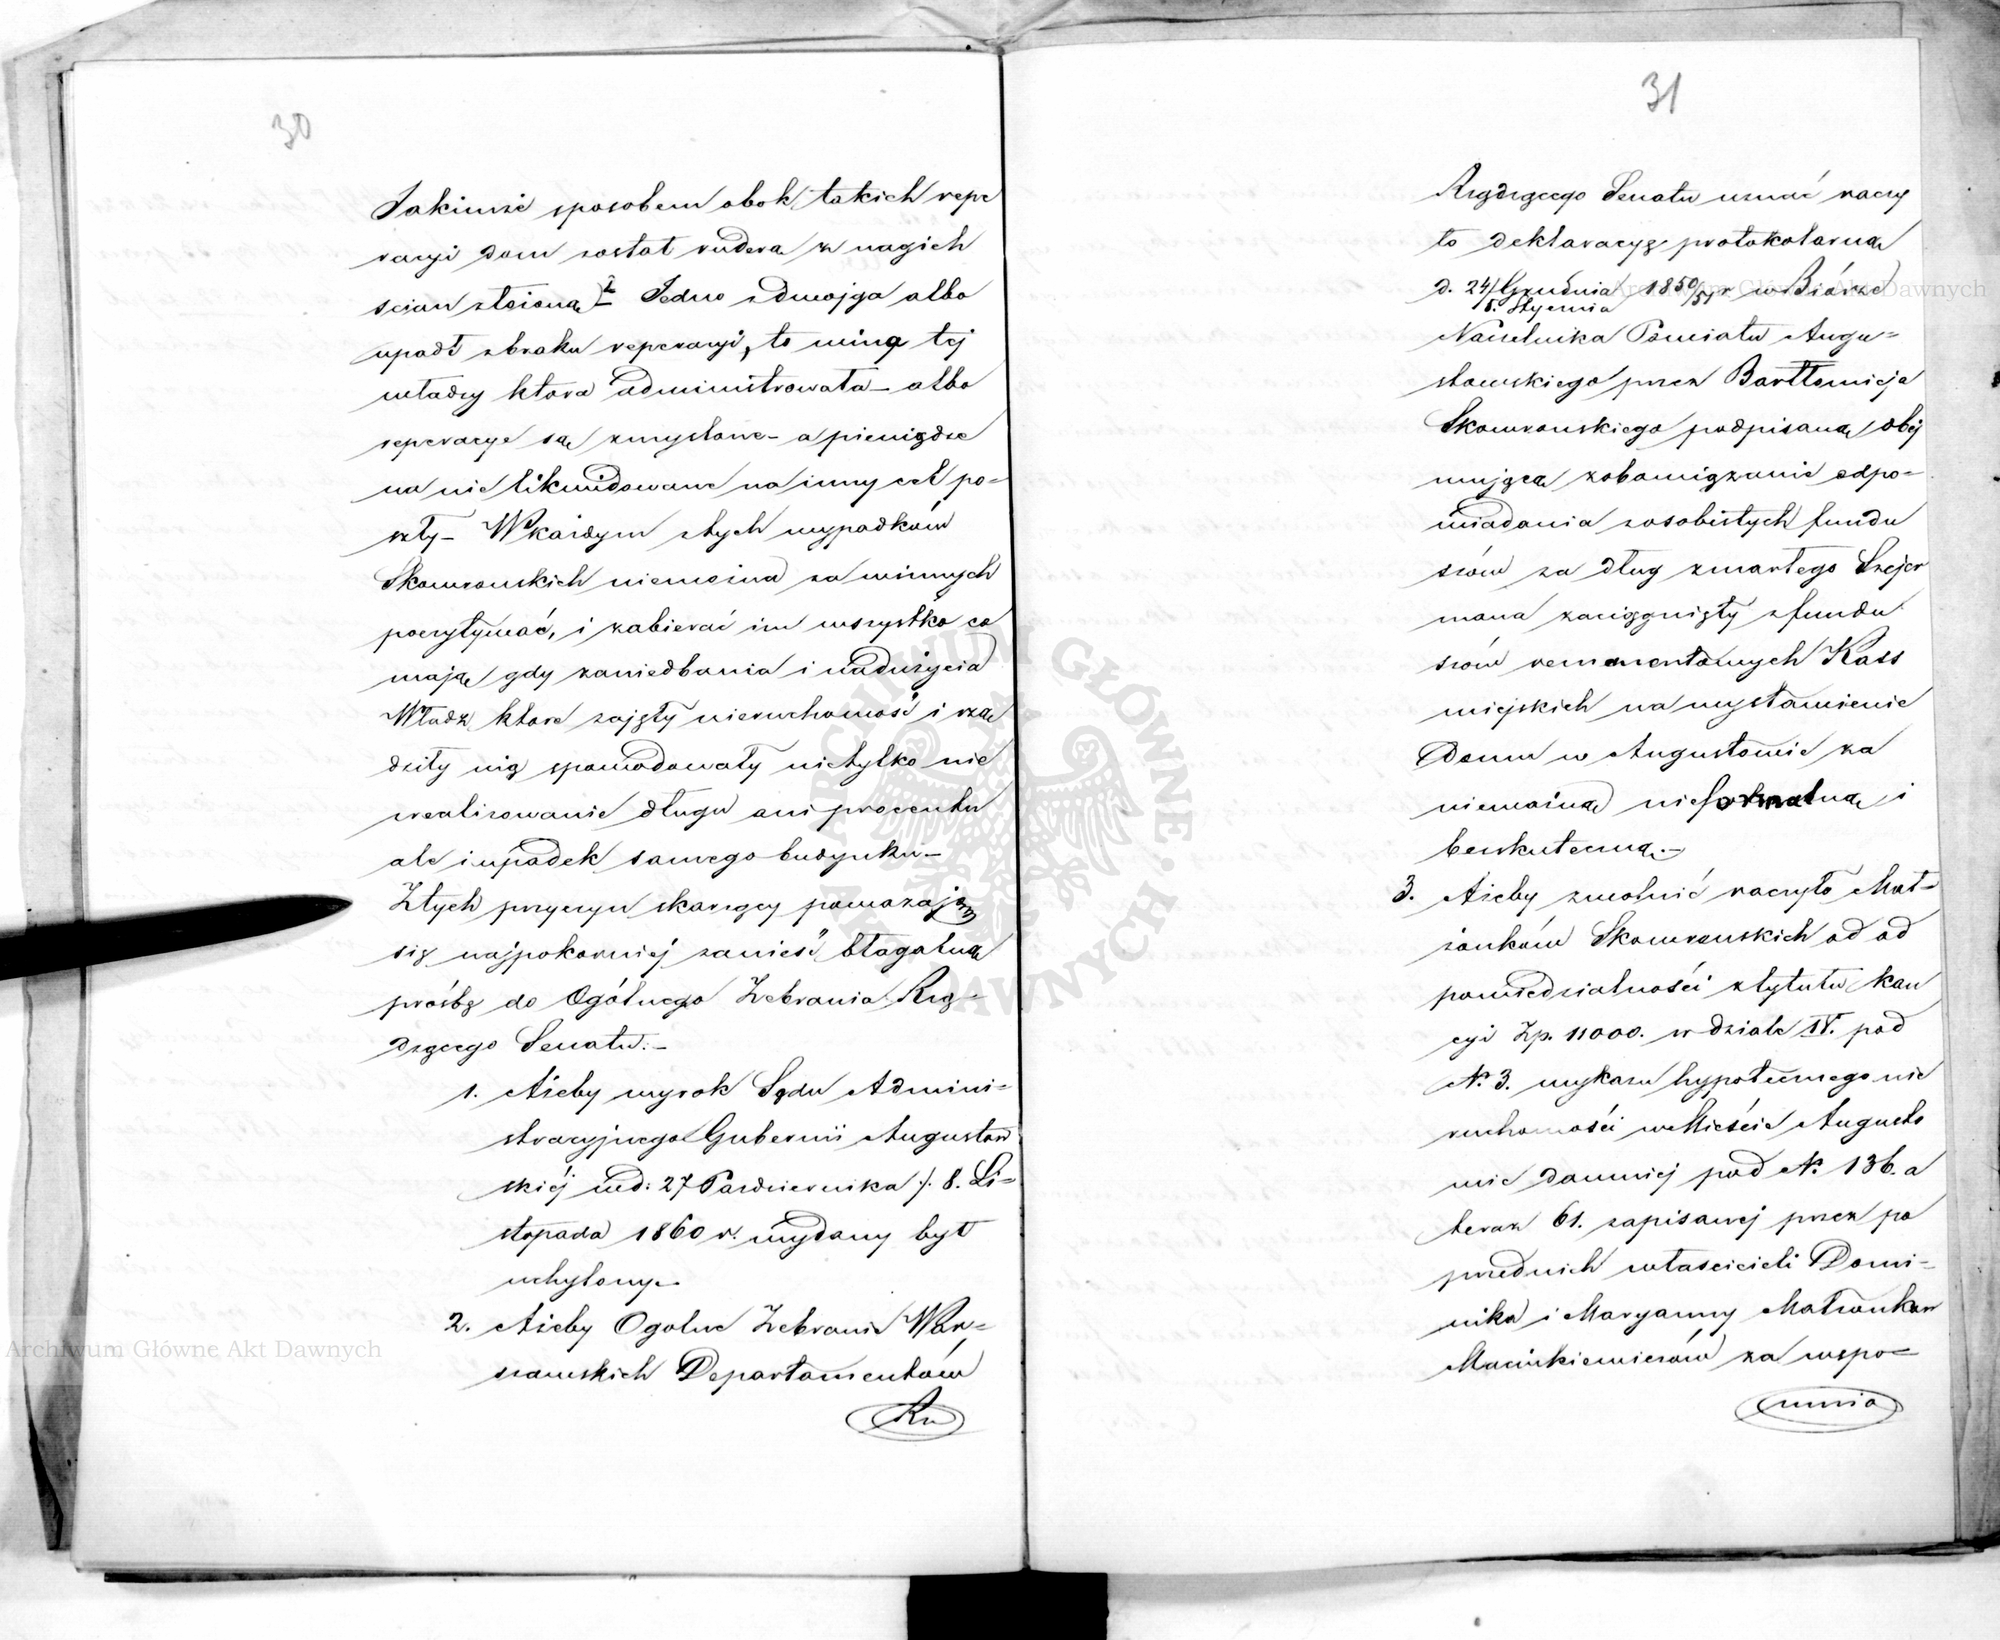 30
Jakimże sposobem obok takich repe
racyi dom został ruderą z nagich
ścian złożoną? Jedno z dwojga albo
upadł z braku reperacyi, to winą tej
władzy ktora administrowała – albo
reperacye są zmyślone – a pieniądze
na nie likwidowane na inny cel po-
szły – W każdym z tych wypadków
Skowronskich niemożna za winnych
poczytywać, i zabierać im wszystko co
mają gdy zaniedbania i nadużycia
Władz ktore zajęły nieruchomość i rzą
dziły nią spowodowały nietylko nie
zrealizowanie długu ani procentu
ale i upadek samego budynku –
Z tych przyczyn skarzący poważają
się najpokorniej zanieść błagalną
prośbę do Ogólnego Zebrania Rzą-
dzącego Senatu. –
1. Ażeby wyrok Sądu Admini-
stracyjnego Gubernii Augustow
skiéj w d: 27 Października /. 8. Li-
stopada 1860 r. wydany był
uchylony. –
2. Ażeby Ogolne Zebranie War-
szawskich Departamentów
Rz
31
Rządzącego Senatu uznać raczy
ło deklaracyą protokolarną
d. 24/ Grudnia 1850/51 r w Biórze
5. Stycznia
Naczelnika Powiatu Augu-
stowskiego przez Bartłomieja
Skowronskiego podpisaną obej
mującą zobowiązanie odpo-
wiadania z osobistych fundu
szów za dług zmarłego Szejer
mana zaciągnięty z fundu
szów remanentowych Kass
miejskich na wystawienie
Domu w Augustowie za
nieważną nieformalną i
bezskuteczną. –
3. Ażeby zwolnić raczyło Mał-
żonków Skowronskich od od
powiedzialności z tytułu kau
cyi Zp. 11000. w dziale IV. pod
N. 3. wykazu hypotecznego nie
ruchomości w Mieście Augusto
wie dawniej pod N. 136. a
teraz 61. zapisanej przez po
przednich właścicieli Domi-
nika i Maryanny Małżonków
Marcinkiewiczów za wspo-
mnia
Archiwum Główne Akt Dawnych
Archiwum Główne Akt Dawnych
ARCHIWUM GŁÓWNE AKT DAWNYCH